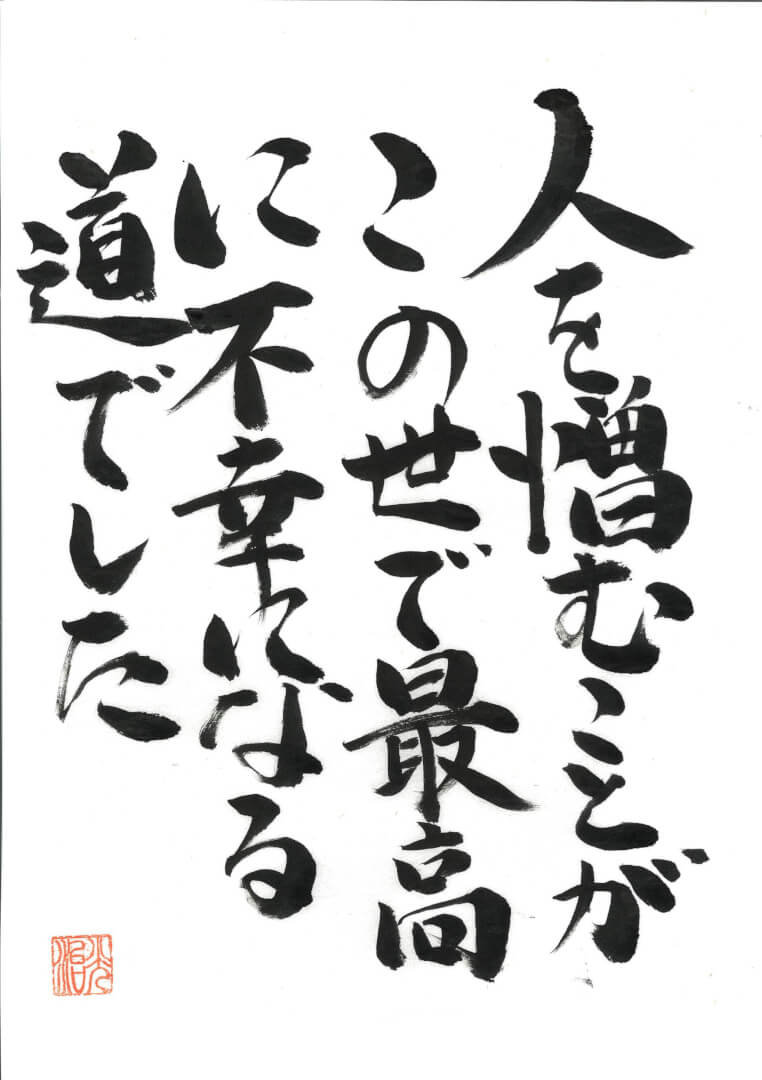 人を憎むことが
この世で最高
に不幸になる
道でした